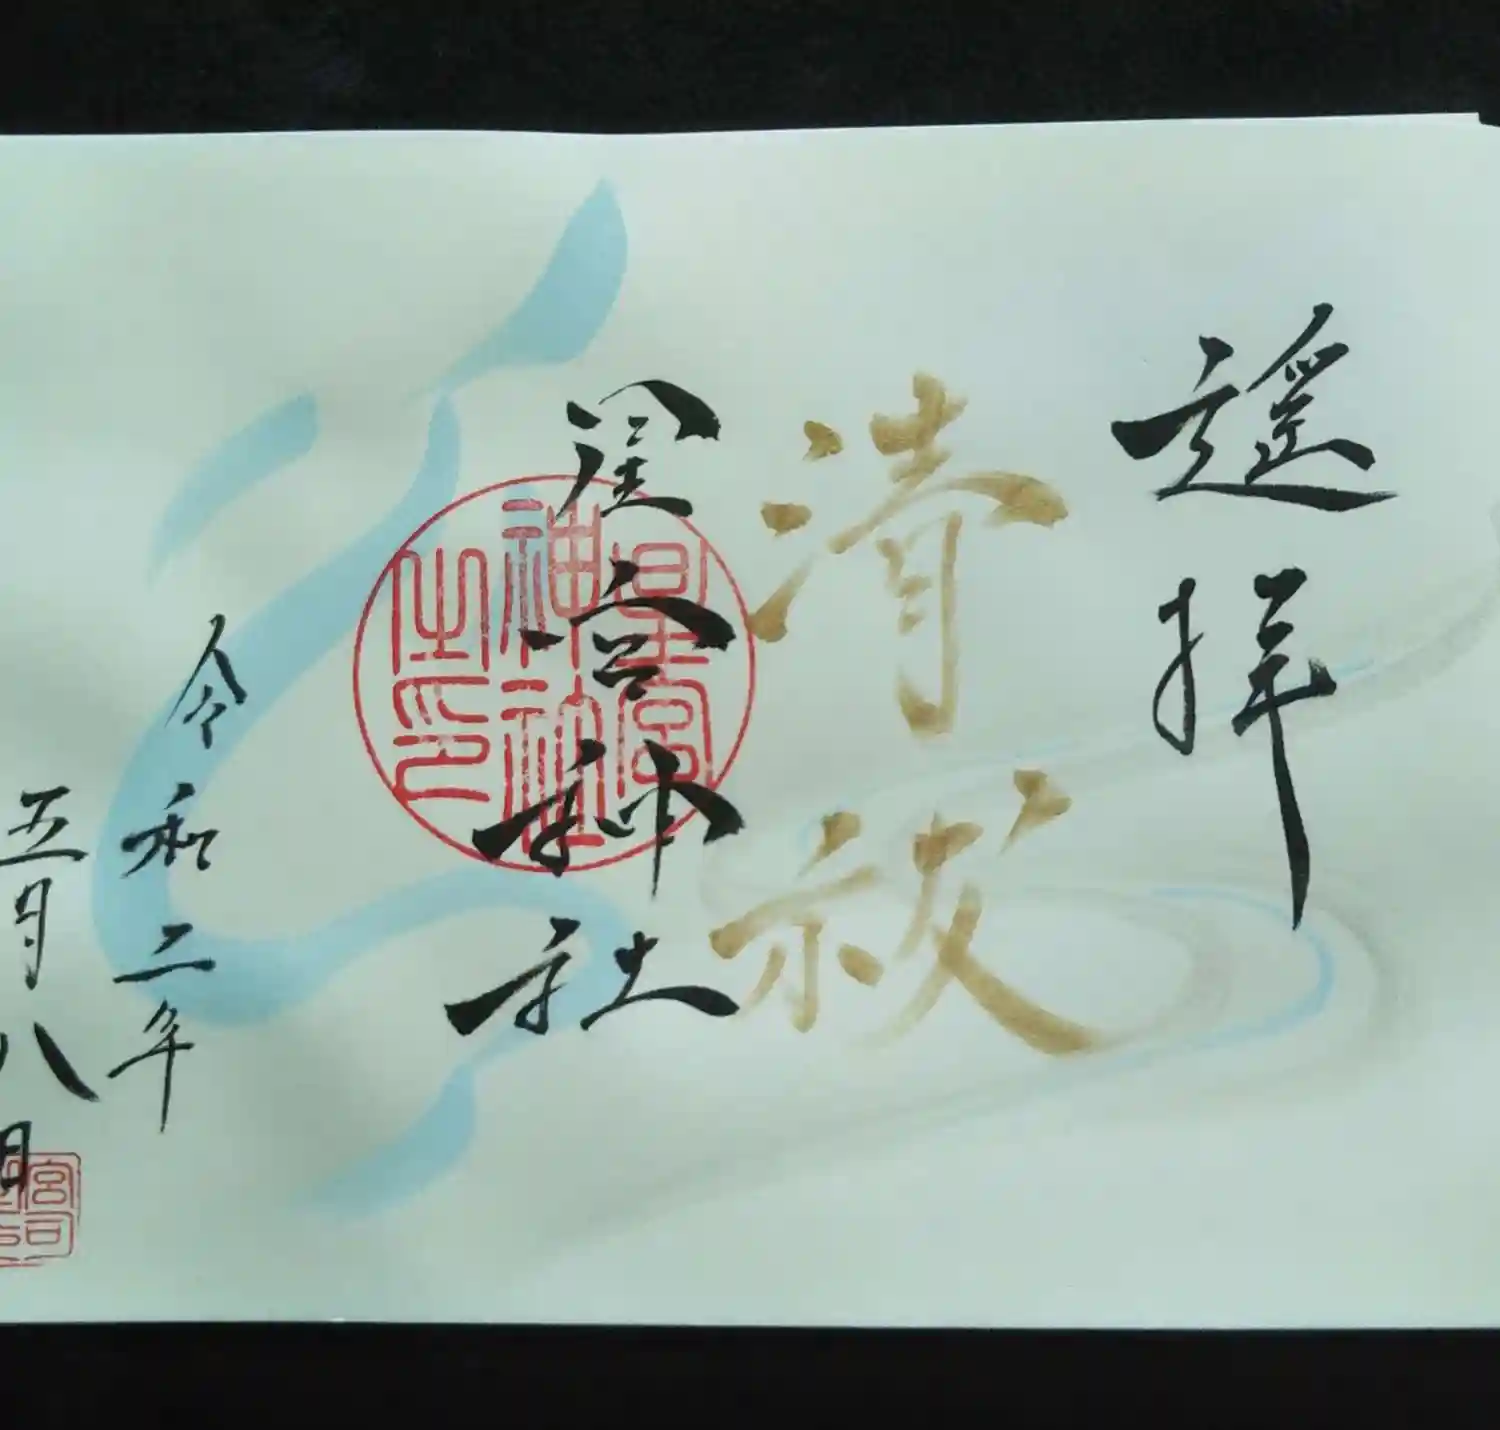 遥拝
清祓
星宮神社
星宮神社之印
令和二年
五月八日
宮司